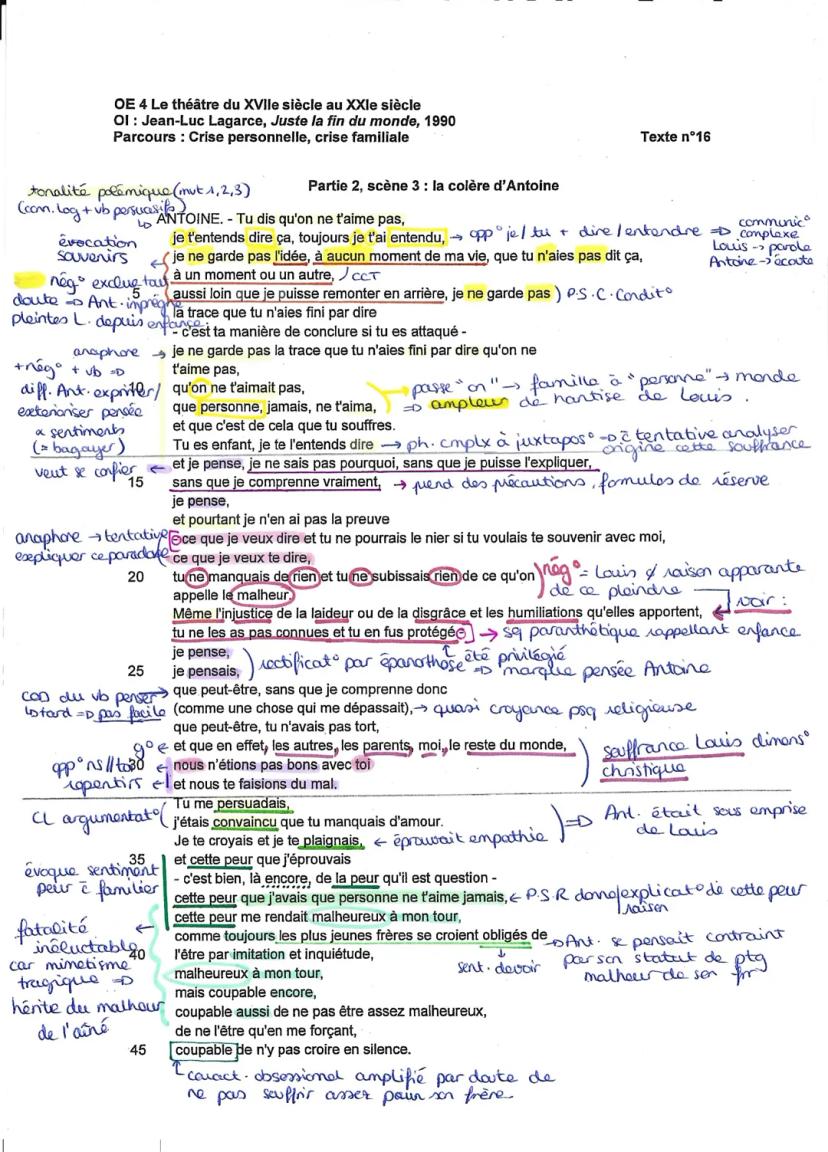 OE 4 Le théâtre du XVIIe siècle au XXIe siècle
OI : Jean-Luc Lagarce, Juste la fin du monde, 1990
Parcours : Crise personnelle, crise familiale Texte n°16
Partie 2, scène 3 : la colère d'Antoine
tonalité polémique (mvt 1, 2, 3)
(conn. log + vb persuasifs)
ANTOINE. - Tu dis qu'on ne t'aime pas,
je t'entends dire ça, toujours je t'ai entendu, → opp° je / tu + dire / entendre => communic° complexe
Louis → parole
Antoine → écoute
évocation souvenirs
je ne garde pas l'idée, à aucun moment de ma vie, que tu n'aies pas dit ça,
à un moment ou un autre, / CCT
nég° exclue tout doute => Ant. imprégné plaintes L. depuis enfance
5 aussi loin que je puisse remonter en arrière, je ne garde pas ) P.S.C. Condit°
la trace que tu n'aies fini par dire
- c'est ta manière de conclure si tu es attaqué -
anaphore → je ne garde pas la trace que tu n'aies fini par dire qu'on ne
t'aime pas,
+ nég° + vb => diff. Ant. exprimer / extérioriser pensée & sentiments (= bagayer)
10 qu'on ne t'aimait pas,
que personne, jamais, ne t'aima,
passe "on" → famille à "personne" → monde
=> ampleur de hantise de Louis.
et que c'est de cela que tu souffres.
Tu es enfant, je te l'entends dire → ph. cmplx à juxtapos° => tentative analyser origine cette souffrance
veut se confier ← et je pense, je ne sais pas pourquoi, sans que je puisse l'expliquer,
15 sans que je comprenne vraiment, → prend des précautions, formules de réserve
je pense,
et pourtant je n'en ai pas la preuve
anaphore → tentative expliquer ce paradoxe
- ce que je veux dire et tu ne pourrais le nier si tu voulais te souvenir avec moi,
ce que je veux te dire,
20 tu ne manquais de rien et tu ne subissais rien de ce qu'on
appelle le malheur.
nég° = Louis raison apparente de ce plaindre
voir :
Même l'injustice de la laideur ou de la disgrâce et les humiliations qu'elles apportent,
tu ne les as pas connues et tu en fus protégé - → sq paranthétique rappellant enfance
été privilégié
je pense,
25 je pensais,
rectificat° par épanorthose => marque pensée Antoine
COD du vb penser → que peut-être, sans que je comprenne donc
tard => pas facile
(comme une chose qui me dépassait), → quasi croyance psq religieuse
que peut-être, tu n'avais pas tort,
g° ← et que en effet, les autres, les parents, moi, le reste du monde,
opp° ns // toi
30 nous n'étions pas bons avec toi
souffrance Louis dimens° christique
repentirs ← et nous te faisions du mal.
Tu me persuadais,
CL argumentat° j'étais convaincu que tu manquais d'amour.
=> Ant. était sous emprise de Louis
Je te croyais et je te plaignais, ← éprouvait empathie
35 et cette peur que j'éprouvais
évoque sentiment peur familier
- c'est bien, là encore, de la peur qu'il est question -
cette peur que j'avais que personne ne t'aime jamais, ← P.S.R donne explicat° de cette peur
raison
cette peur me rendait malheureux à mon tour,
comme toujours les plus jeunes frères se croient obligés de
sent. devoir
→ Ant. se pensait contraint par son statut de ptg malheur de son fr
fatalité inéluctable car mimétisme tragique => hérite du malheur de l'aîné
40 l'être par imitation et inquiétude,
malheureux à mon tour,
mais coupable encore,
coupable aussi de ne pas être assez malheureux,
de ne l'être qu'en me forçant,
45 coupable de n'y pas croire en silence.
caract. obsessionnel amplifié par doute de
ne pas souffrir assez pour son frère